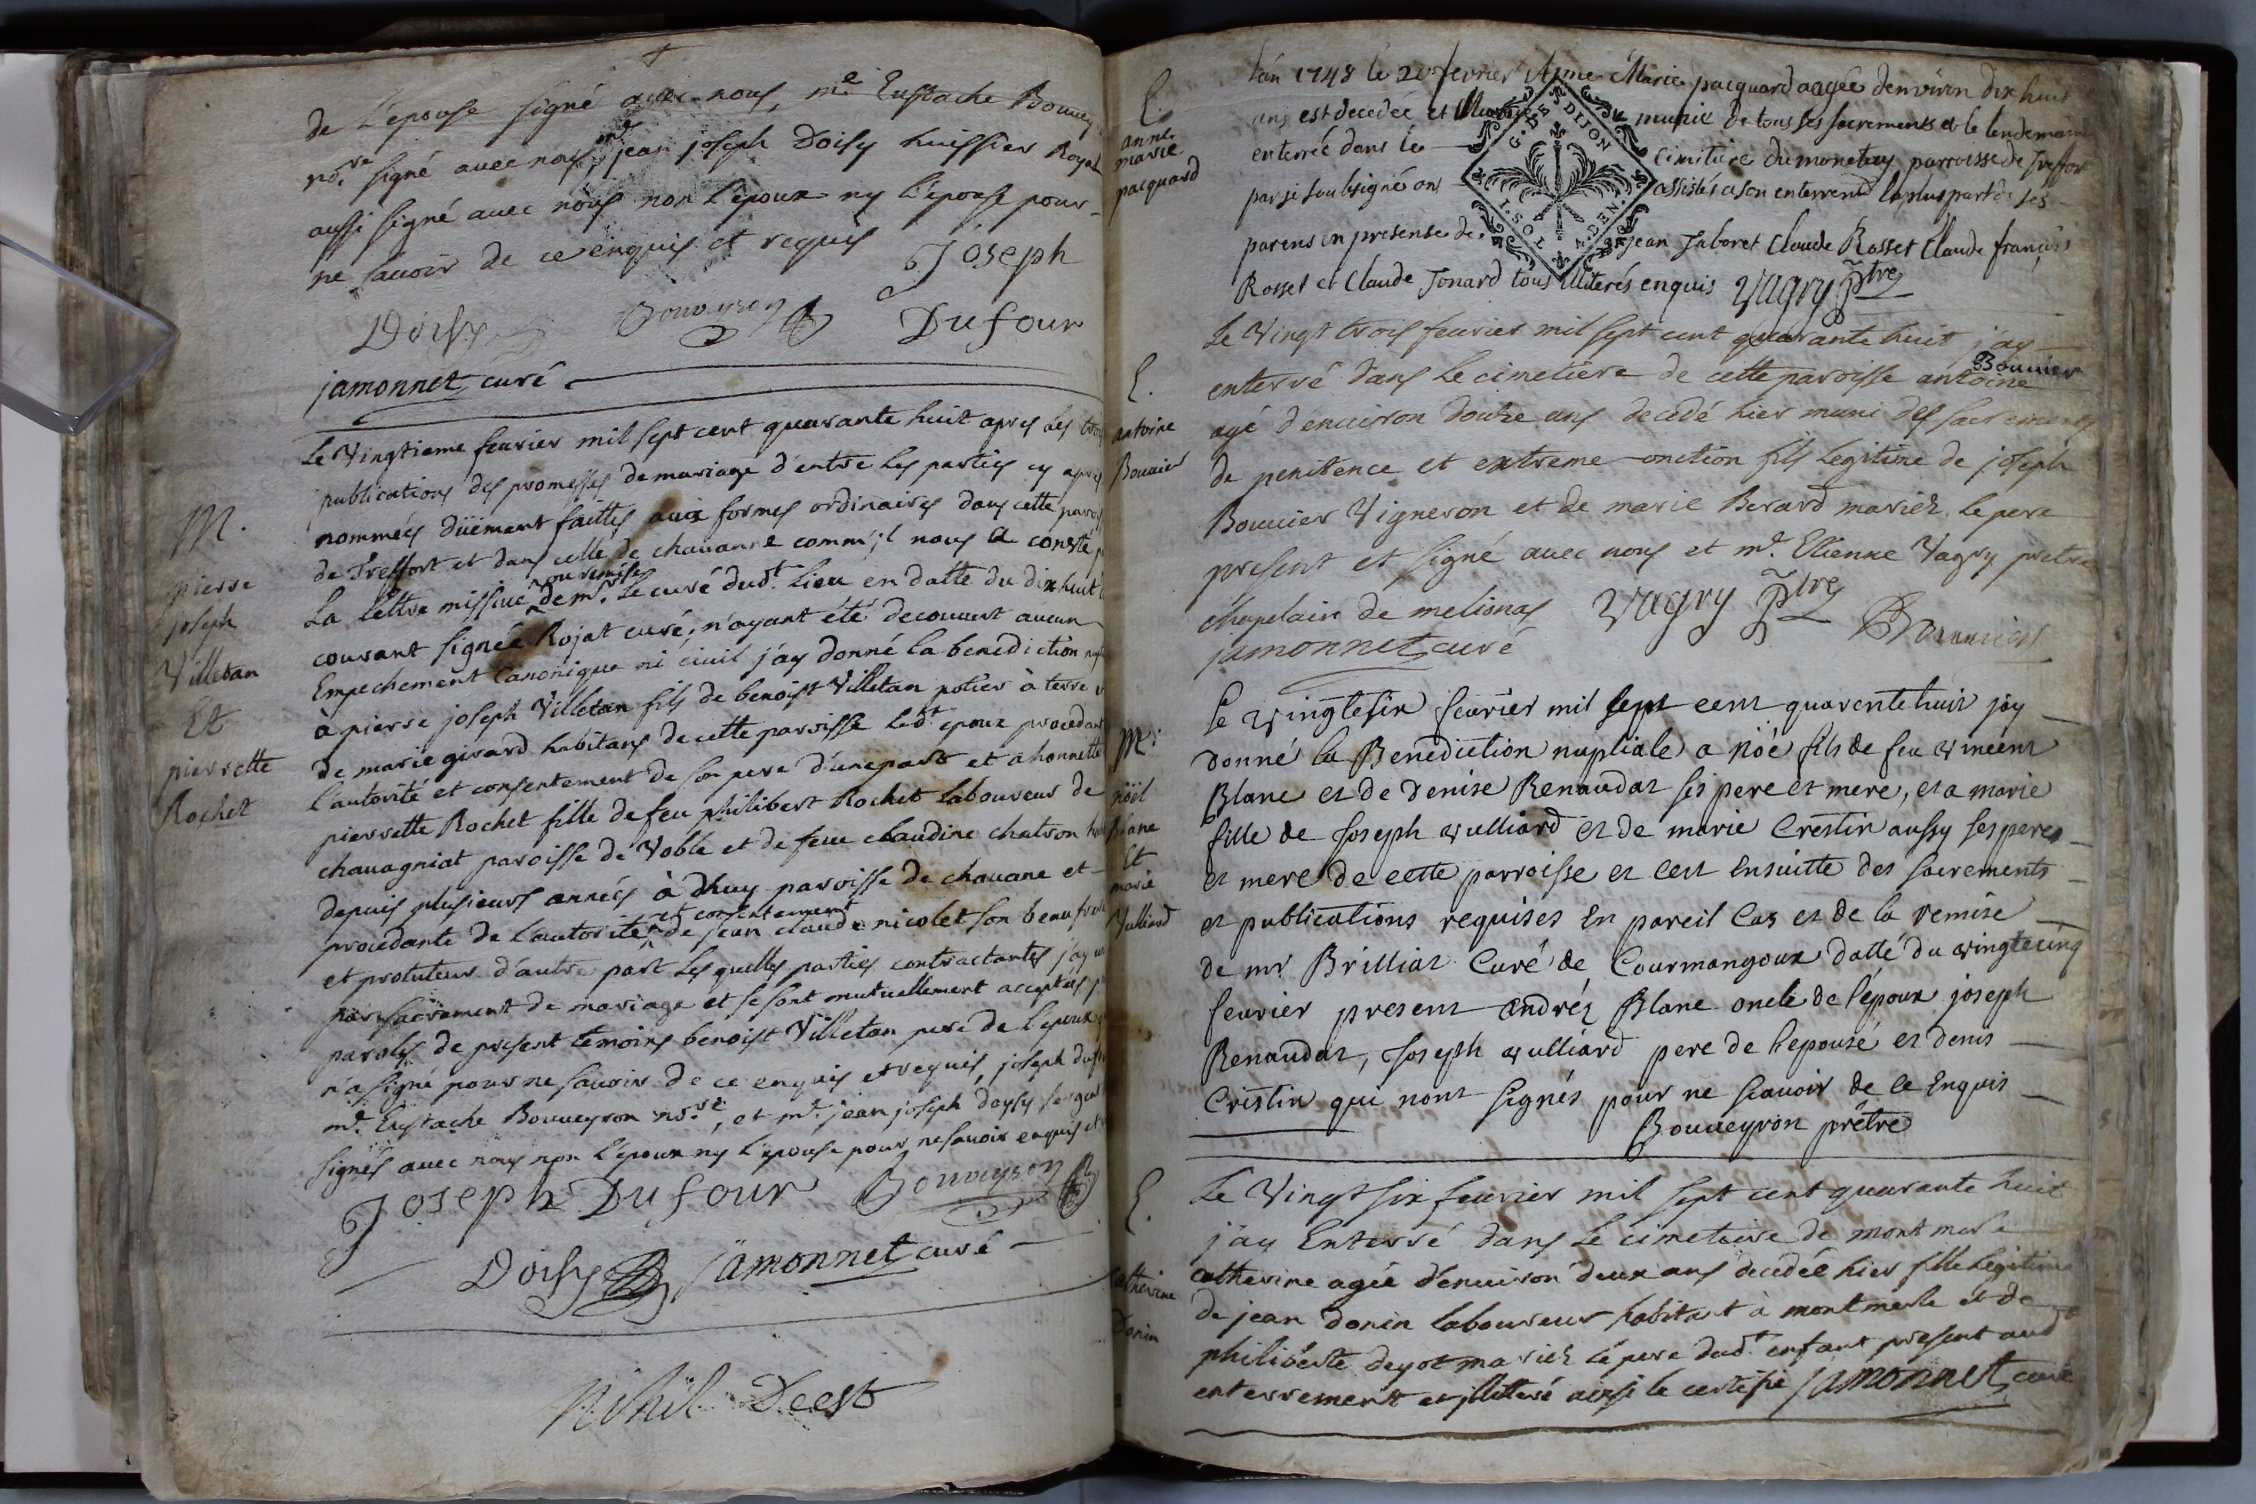 de L'epouse signé avec nous, me Eustache Bouvey
nore. signé avec nous, mr. jean joseph Doisy huissier Royal
aussi signé avec nous non L'epoux ny L'épouse pour
ne sauoir de ce enquis et requis Joseph
Doisy Bouveyron Dufour
jamonnet curé
Le Vingtieme feurier mil sept cent quarante huit apres les trois
publications des promesses de mariage d'entre les parties cy apres
nommées düement faittes aux formes ordinaires dans cette paroi
de Treffort et dans celle de chauanne comm'jl nous a consté p
La lettre missiue ou remise de mr. Le curé dudt. Lieu en datte du dix huit
courant signée Rojat curé; n'ayant été decouuert aucun
Empechement Canonique ni ciuil j'ay donné la benediction
à pierre joseph Villetan fils de benoist Villetan potier à terre
de marie girard habitans de cette paroisse Ledt. epoux procedant
L'autorité et consentement de son pere d'une part et a honnette
pierrette Rochet fille de feu philibert Rochet Laboureur de
chauagniat paroisse de Voble et de feue claudine chatron
depuis plusieurs années à Dhuy paroisse de chauane et
procedante de L'autorité et consentement de jean claude nicolet son beau frere
et protuteur d'autre part Les quelles parties contractantes j'ay
par sacrament de mariage et se sont mutuellement acceptés
paroles de present temoins benoist Villetan pere de L'epoux
n'a signé pour ne sauoir de ce enquis et requis, joseph duf
mr. Eustache Bouueyron nore., et mr. jean joseph doysy sergent
signés avec nous non L'epoux ny L'epouse pour ne sauoir enquis et
Joseph Dufour Bouveyron
Doisy jamonnet curé
Nihil Deest
M.
pierre
joseph
Villetan
Et
pierrette
Rochet
L'án 1748 le 20 fevrier Anne Marie pacquard aagée denviron dix huit
ans est decedée et munie de tous ses sacrements et le lendemain
enterrée dans le cimitiere du monetay parroisse de treffor
par si soubsigné ons assistés a son enterrement la plus part de ses
parens en presense de jean Jaboret Claude Rosset Claude françois
Rosset et Claude Jonard tous illiterés enquis Vagry Ptre
G. DES. N. DIJON
I. S. SOL
A. DEN.
E.
anne
marie
pacquard
Le Vingt trois feurier mil sept cent quarante huit j'ay
enterré dans Le cimetiére de cette paroisse antoine Bouuier
agé d'enuiron douze ans decedé hier muni des sacrements
de penitence et extreme onction fils Legitime de joseph
Bouuier Vigneron et de marie Berard mariéz Le pere
present et signé auec nous et mr. Etienne Vagry pretre
chapelain de melionas Vagry Ptre
jamonnet curé Bouuier
E.
antoine
Bouuier
le vingtesix feurier mil sept cent quarente huit jäy
donné la Benediction nuptiale a noé fils de feu vincent
Blanc et de denise Renaudat ses pere et mere, et a marie
fille de Joseph vulliard et de marie Crestin aussy ses pere
et mere de cette parroisse et cest Ensuitte des sacrements
et publications requises En pareil Cas et de la remise
de mr Brilliat Curé de Courmangoux datté du vingtecinq
feurier present andréz Blanc oncle de l'époux joseph
Renaudat, Joseph vulliard pere de l'epouse et denis
Cristin qui nont signés pour ne scauoir de ce Enquis
Bouueyron prêtre
M.
nöel
Blanc
Et
marie
Vulliard
Le Vingt six feurier mil sept cent quarante huit
j'ay Enterré dans Le cimetiere de montmerle
catherine agée d'enuiron deux ans decedée hier fille Legitime
de jean donin laboureur habitant à montmerle et de
philiberte deyot mariéz Le pere dudt. enfant present audt
enterrement et jlliteré ainsi le certifie jamonnet curé
E.
catherine
Donin